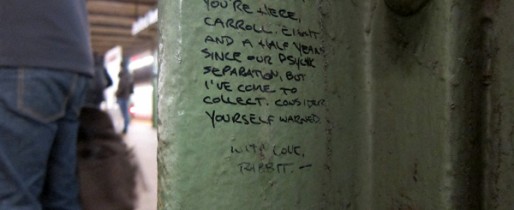 YOU'RE HERE,
CARROLL. EIGHT
AND A HALF YEARS
SINCE OUR PSYCHIC
SEPARATION, BUT
I'VE COME TO
COLLECT. CONSIDER
YOURSELF WARNED.
WITH LOVE,
RABBIT. –